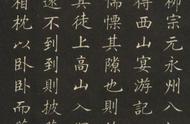 柳宗元永州八
得西山宴游記
惴慄其隙也則
其徒上高山入
遠不到到則披
相枕以臥臥而